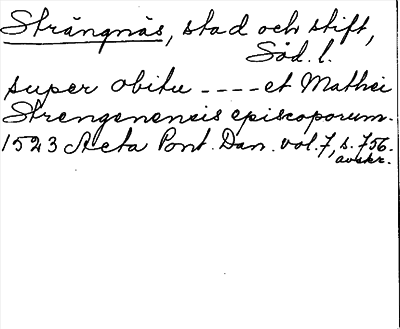 Strängnäs, stad och stift,
Söd. l.
super obitu ---- et Mathei
Strengenensis episcoporum.
1523 Acta Pont. Dan. vol. 7, s. 756.
avskr.